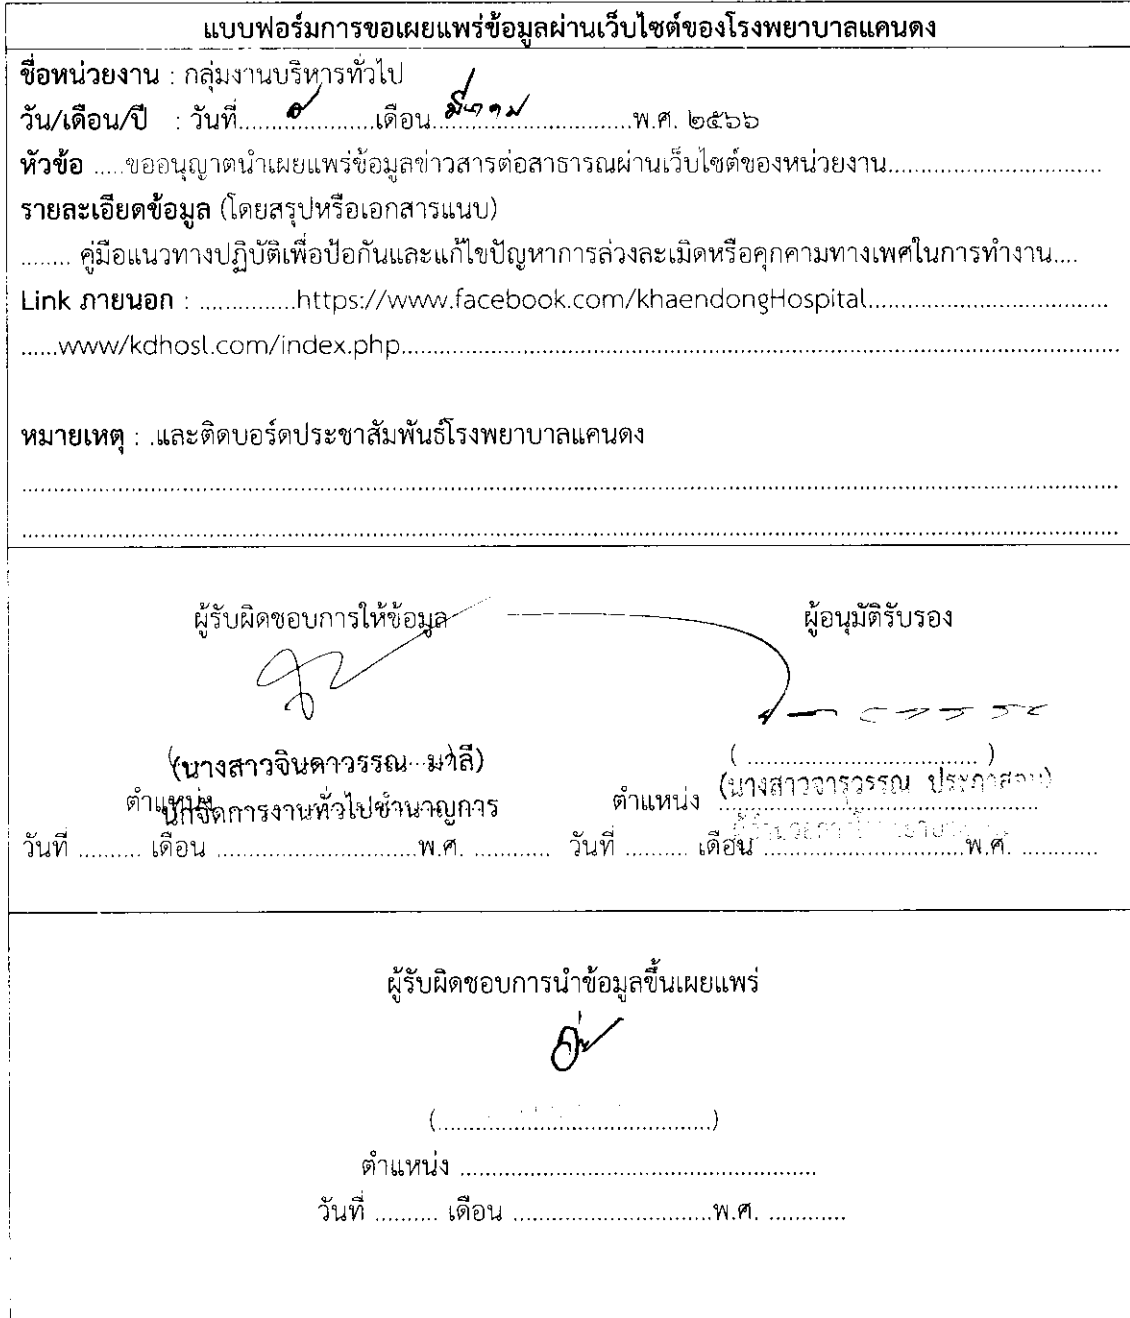 แบบฟอร์มการขอเผยแพร่ข้อมูลผ่านเว็บไซต์ของโรงพยาบาลแคนดง
ชื่อหน่วยงาน : กลุ่มงานบริหารทั่วไป
วัน/เดือน/ปี : วันที่....................เดือน.มีนาคม............................พ.ศ. ๒๕๖๖
หัวข้อ .....ขออนุญาตนำเผยแพร่ข้อมูลข่าวสารต่อสาธารณผ่านเว็บไซต์ของหน่วยงาน................................
รายละเอียดข้อมูล (โดยสรุปหรือเอกสารแนบ)
........ คู่มือแนวทางปฏิบัติเพื่อป้อกันและแก้ไขปัญหาการล่วงละเมิดหรือคุกคามทางเพศในการทำงาน....
Link ภายนอก : ...............https://www.facebook.com/khaendongHospital....................................
......www/kdhosl.com/index.php.............................................................................................................
หมายเหตุ : .และติดบอร์ดประชาสัมพันธ์โรงพยาบาลแคนดง
ผู้รับผิดชอบการให้ข้อมูล ผู้อนุมัติรับรอง
(นางสาวจินดาวรรณ มาลี) ( ................................... )
ตำแหน่ง นักจัดการงานทั่วไปชำนาญการ ตำแหน่ง (นางสาวจารุวรรณ ประภาสอน)
วันที่ .......... เดือน ...............................พ.ศ. ............ วันที่ .......... เดือน ...............................พ.ศ. ............
ผู้รับผิดชอบการนำข้อมูลขึ้นเผยแพร่
(...........................................)
ตำแหน่ง .......................................................
วันที่ .......... เดือน ...............................พ.ศ. ............